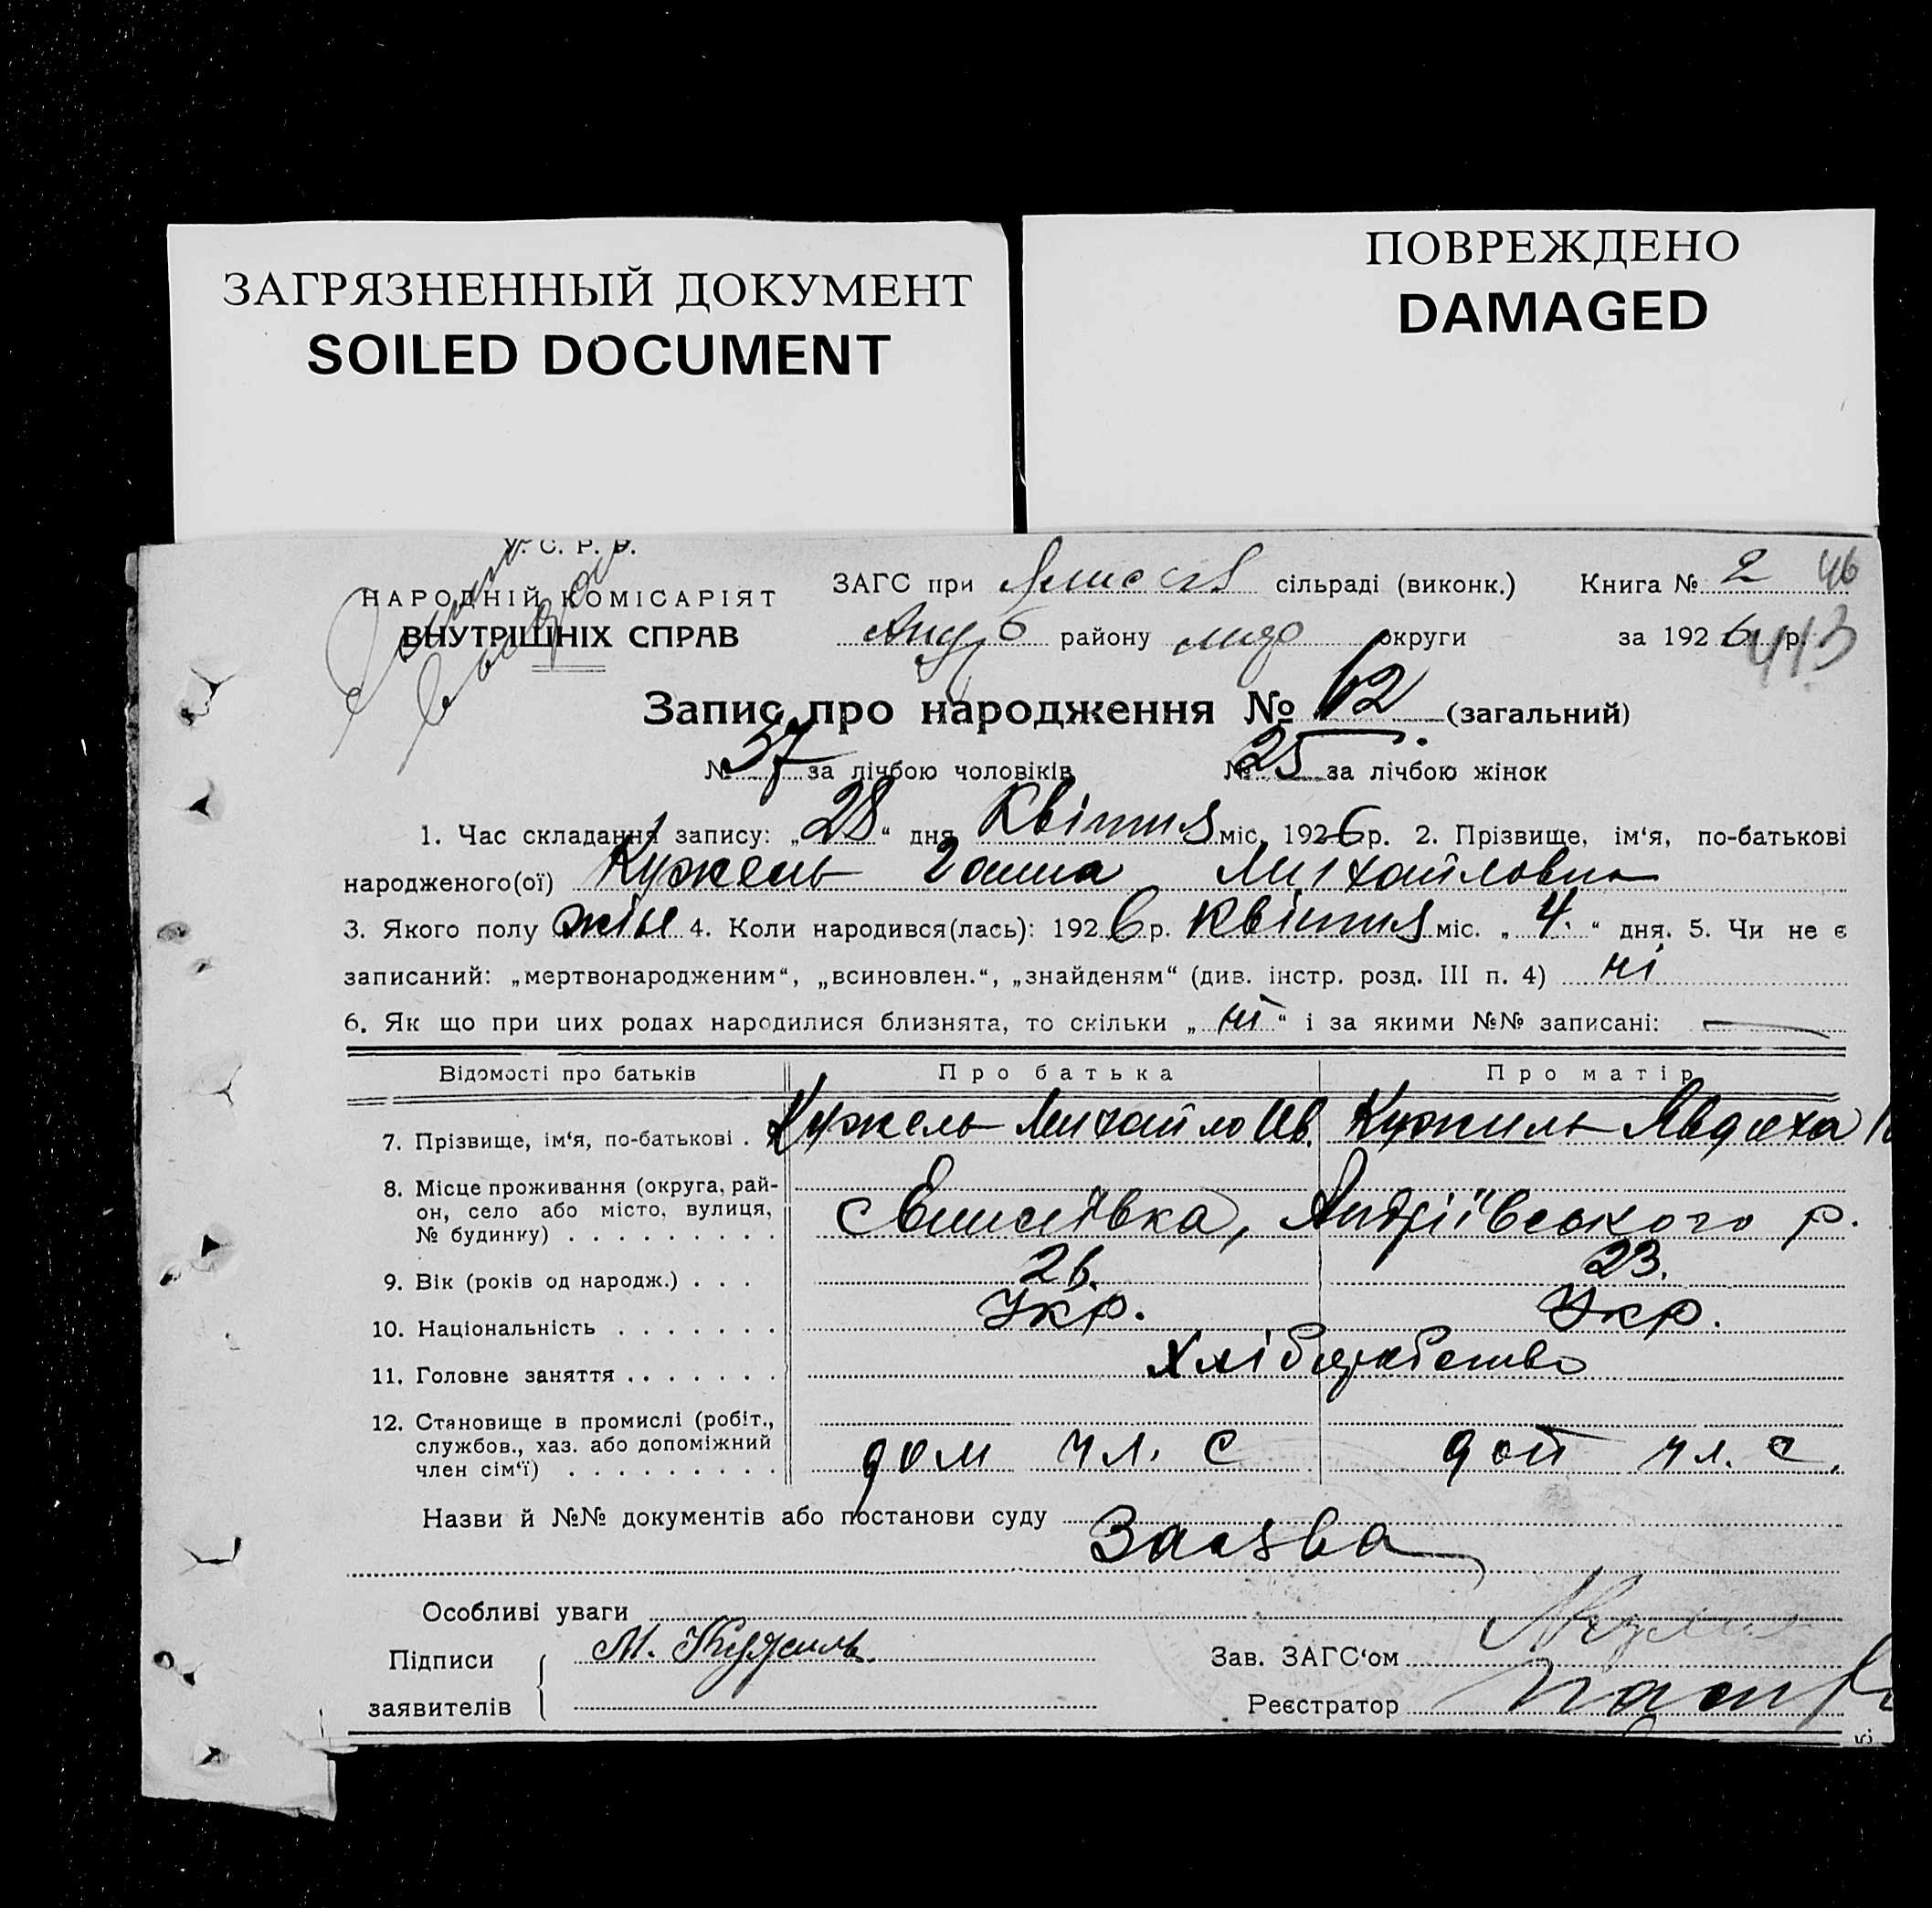 ЗАГРЯЗНЕННЫЙ ДОКУМЕНТ
SOILED DOCUMENT
ПОВРЕЖДЕНО
DAMAGED
У. С. Р. Р.
НАРОДНІЙ КОМІСАРІЯТ
ВНУТРІШНІХ СПРАВ
ЗАГС при сільраді (виконк.) Книга № 2 46
району округи за 1926 р. 413
Запис про народження № 62 (загальний)
№ 37 за лічбою чоловіків № 25 за лічбою жінок
1. Час складання запису: „28“ дня Квітня міс. 1926 р. 2. Прізвище, ім‘я, по-батькові
народженого(ої) Кужель Ганна Михайловна
3. Якого полу жін 4. Коли народився(лась): 1926 р. Квітня міс. „4.“ дня. 5. Чи не є
записаний: „мертвонародженим“, „всиновлен.“, „знайденям“ (див. інстр. розд. III п. 4) ні
6. Як що при цих родах народилися близнята, то скільки „ні“ і за якими №№ записані: —
Відомості про батьків Про батька Про матір
7. Прізвище, ім‘я, по-батькові . Кужель Михайло Ів. Кужиль Явдоха
8. Місце проживання (округа, рай-
он, село або місто, вулиця,
№ будинку) . . . . . . . . . Андріївського р.
9. Вік (років од народж.) . . . 26. 23.
10. Національність . . . . . . . Укр. Укр.
11. Головне заняття . . . . . . . Хліборобство
12. Становище в промислі (робіт.,
службов., хаз. або допоміжний
член сім‘ї) . . . . . . . . . дом чл. с доп чл. с.
Назви й №№ документів або постанови суду Заява
Особливі уваги
Підписи М. Кужиль Зав. ЗАГС‘ом
заявителів Реєстратор